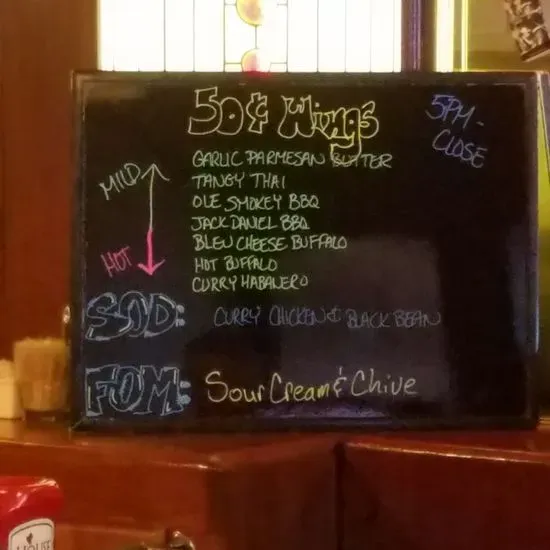 50¢ Wings
5PM -
CLOSE
MILD
HOT
GARLIC PARMESAN BUTTER
TANGY THAI
OLE SMOKEY BBQ
JACK DANIEL BBQ
BLEU CHEESE BUFFALO
HOT BUFFALO
CURRY HABANERO
SOD: CURRY CHICKEN & BLACK BEAN
FOM: Sour Cream & Chive